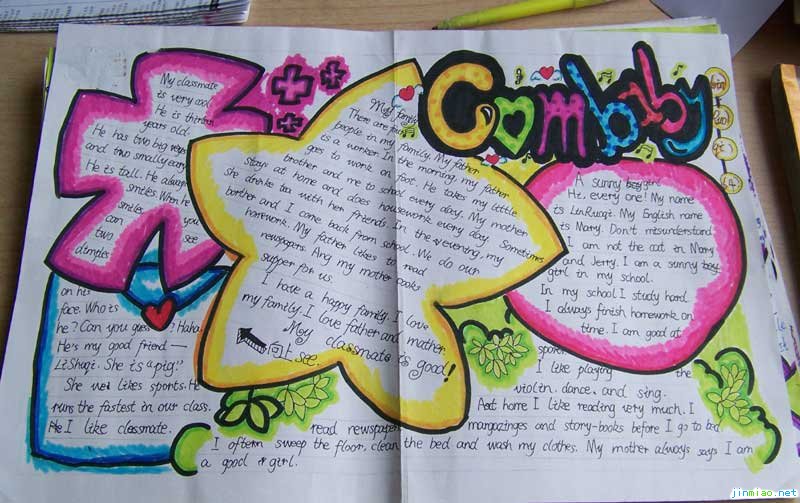 Combaby
My classmate
is very cool
He is thirteen
years old.
He has two big eyes
and two smally ears
He is tall. He always
smiles. When he
smiles you
can see
two
dimples
on his
face. Who is
he? Can you guess? Haha
He's my good friend —
LiShaqi. She is a "pig!"
She likes sports. He
runs the fastest in our class.
I like classmate.
My family
There are four
people in my family. My father
is a worker. In the morning, my father
goes to work on foot. He takes my little
brother and me to school every day. My mother
stays at home and does housework every day. Sometimes
she drinke tea with her friends. In the evening, my
borther and I come back from school. We do our
homework. My father likes to read
newspapers. Ang my mother cooks
supper for us
I have a happy family. I love
my family. I love father and mother.
My classmate is good!
向上 see.
A sunny girl
Hi, every one! My name
is LinRuoqi. My English name
is Marry. Don't misunderstand
I am not the cat in Marry
and Jerry. I am a sunny
girl in my school.
In my school I study hard.
I always finish homework on
time. I am good at
sport.
I like playing the
violin, dance, and sing.
Aat home I like reading very much. I
read newspaper margazinges and story-books before I go to bed.
I oftern sweep the floor, clean the bed and wash my clothes. My mother always says I am
a good girl.
jinmiao.net